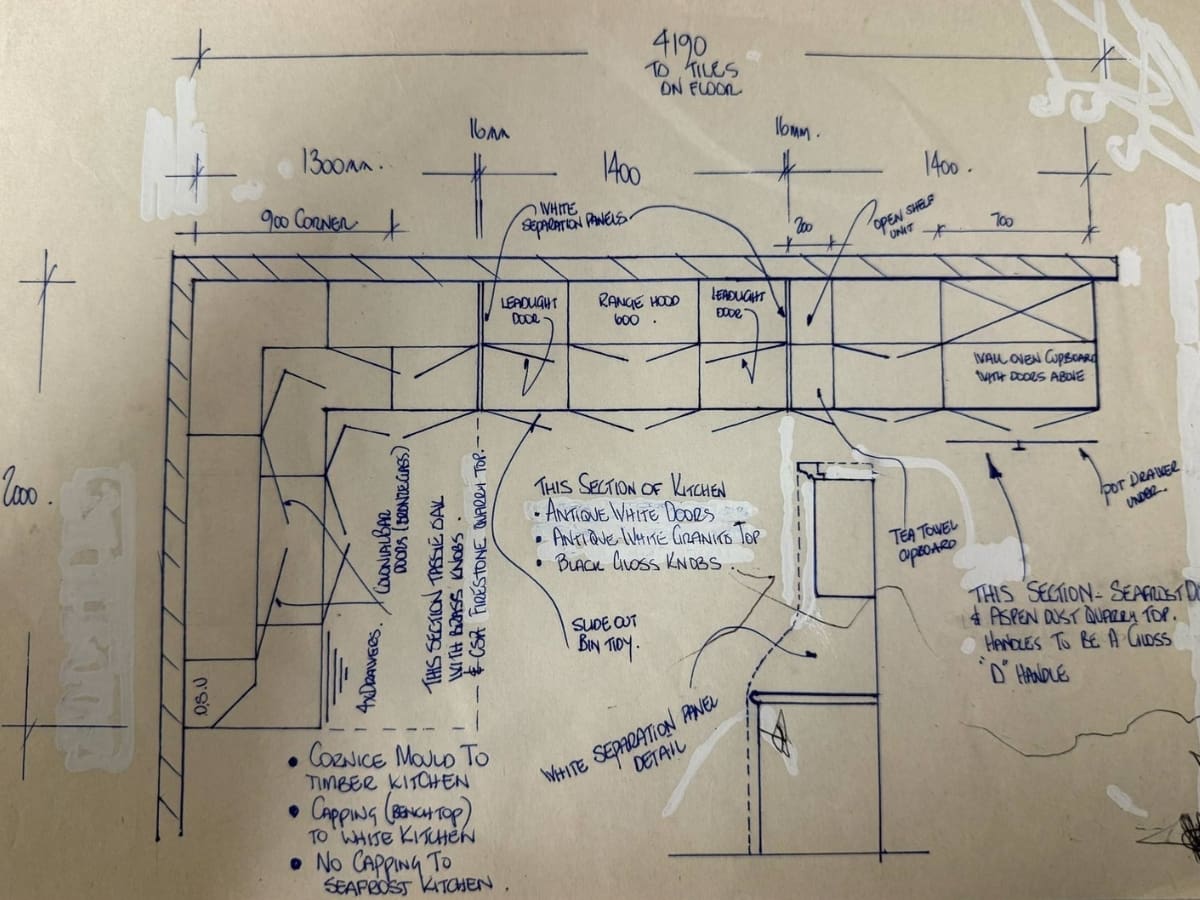 4190
TO TILES
ON FLOOR
16mm
16mm.
1300mm.
1400
1400.
900 CORNER
WHITE
SEPARATION PANELS
200
OPEN SHELF
UNIT
700
LEADLIGHT
DOOR
RANGE HOOD
600.
LEADLIGHT
DOOR
WALL OVEN CUPBOARD
WITH DOORS ABOVE
2000.
COLONIAL BAR
DOORS (BRONZE GLASS)
THIS SECTION TASSIE OAK
WITH BRASS KNOBS.
& CSR FIRESTONE QUARRY TOP.
4xDRAWERS.
O.S.U
THIS SECTION OF KITCHEN
• ANTIQUE WHITE DOORS
• ANTIQUE WHITE GRANITE TOP
• BLACK GLOSS KNOBS.
SLIDE OUT
BIN TIDY.
TEA TOWEL
CUPBOARD
POT DRAWER
UNDER.
THIS SECTION - SEAFROST D
& ASPEN DUST QUARRY TOP.
HANDLES TO BE A GLOSS
"D" HANDLE
WHITE SEPARATION PANEL
DETAIL
• CORNICE MOULD TO
TIMBER KITCHEN
• CAPPING (BENCHTOP)
TO WHITE KITCHEN
• NO CAPPING TO
SEAFROST KITCHEN.